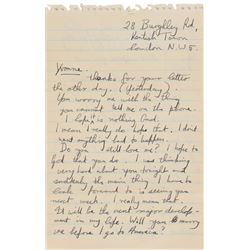 28 Burghley Rd,
Kentish Town
London N.W.5.
Yvonne.
thanks for your letter
the other day. (Yesterday).
You worry me with the
you cannot tell me on the phone.
I hope is nothing bad.
I mean I really do hope that. I don't
want anything bad to happen.
Do you still love me? I hope to
god that you do. I was thinking
very hard about you tonight and
suddenly the main thing I have to
look forward to is seeing you
next week. I really mean that.
It will be the next major develop-
ment in my life. Will you marry
me before I go to America?